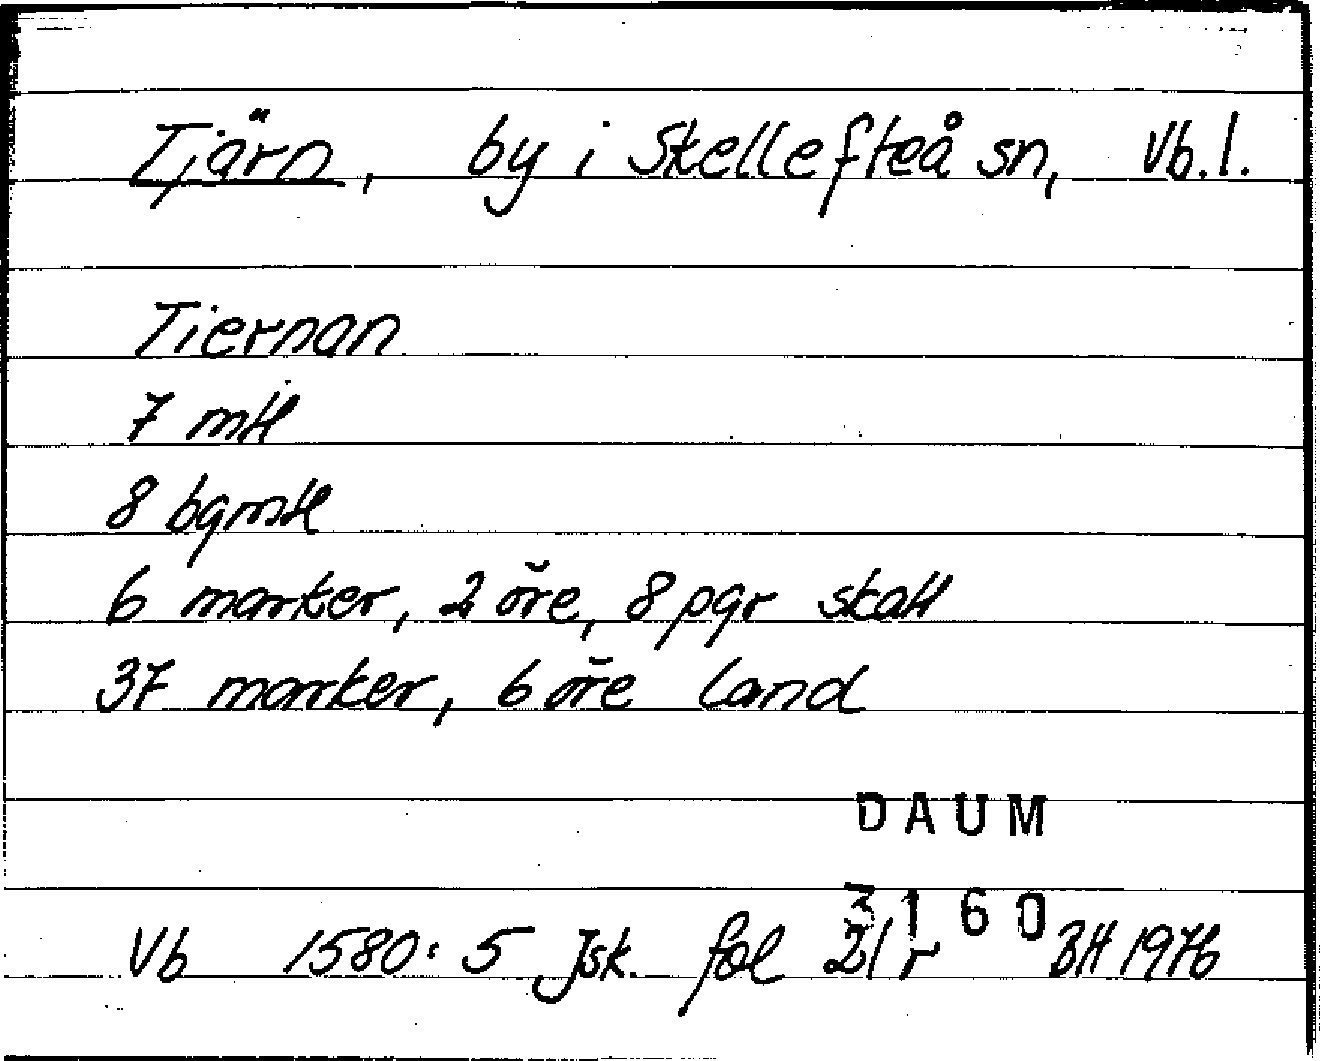 Tjärn, by i Skellefteå sn, Vb.l.
Tiernan
7 mtl
8 bgmtl
6 marker, 2 öre, 8 pgr skatt
37 marker, 6 öre land
DAUM
3160
Vb 1580:5 Jsk. fol 21 r BH 1976